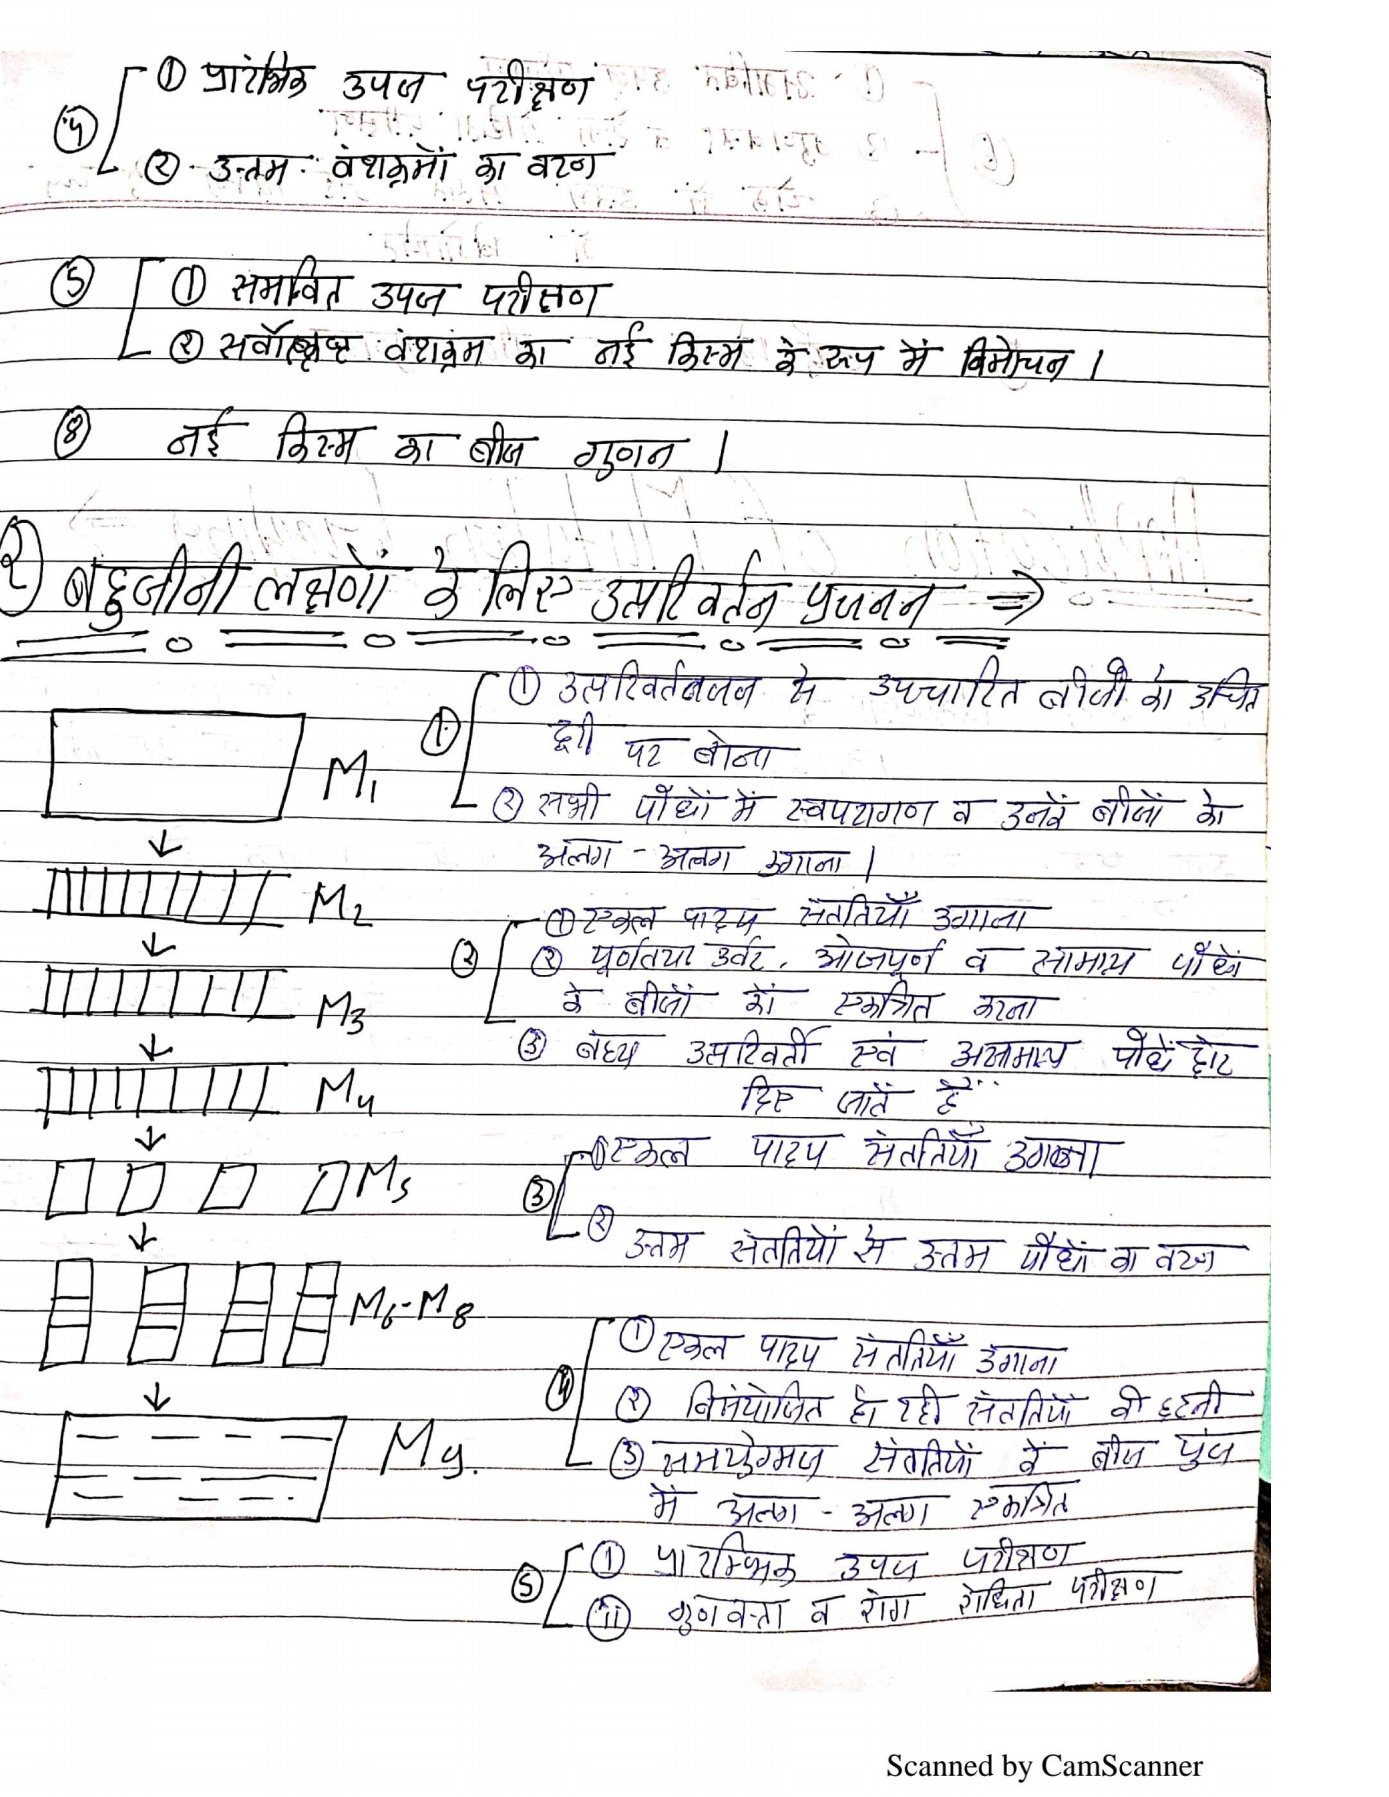 ④ ① प्रारंभिक उपज परीक्षण
② उत्तम वंशक्रमों का वरण
⑤ ① समन्वित उपज परीक्षण
② सर्वोत्कृष्ट वंशक्रम का नई किस्म के रूप में विमोचन ।
⑧ नई किस्म का बीज गुणन ।
२) बहुजीनी लक्षणों के लिए उत्परिवर्तन प्रजनन ⇒
① ① उत्परिवर्तनजन से उपचारित बीजों को उचित
दूरी पर बोना
② सभी पौधों में स्वपरागण व उनके बीजों को
अलग - अलग उगाना ।
M1
M2
② ① एकल पादप संततियाँ उगाना
② पूर्णतया उर्वर, ओजपूर्ण व सामान्य पौधों
के बीजों को एकत्रित करना
M3
③ बंध्य उत्परिवर्ती एवं असामान्य पौधें छोट
दिए जातें हैं
M4
③ ① एकल पादप संततियाँ उगाना
M5
② उत्तम संततियों से उत्तम पौधों का वरण
M6-M8
④ ① एकल पादप संततियाँ उगाना
② विसंयोजित हो रही संततियों की छटनी
③ समयुग्मज संततियों के बीज पुंज
में अलग - अलग एकत्रित
M9.
⑤ ① प्रारम्भिक उपज परीक्षण
ii गुणवत्ता व रोग रोधिता परीक्षण
Scanned by CamScanner